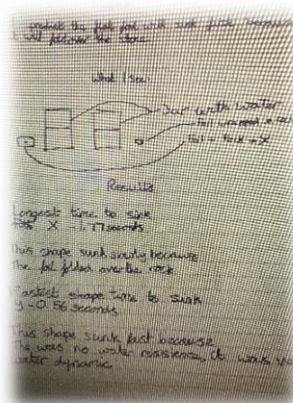 predict the flat foil will sink first because
it will the
What I Saw
Jar with water
foil wrapped in
foil + rock = X
Results
Longest time to sink
X - 1.77 seconds
This shape sunk slowly because
The foil folded over the rock
Fastest shape time to sink
y - 0.56 seconds
This shape sunk fast because
The was no water resistence, it was
water dynamic